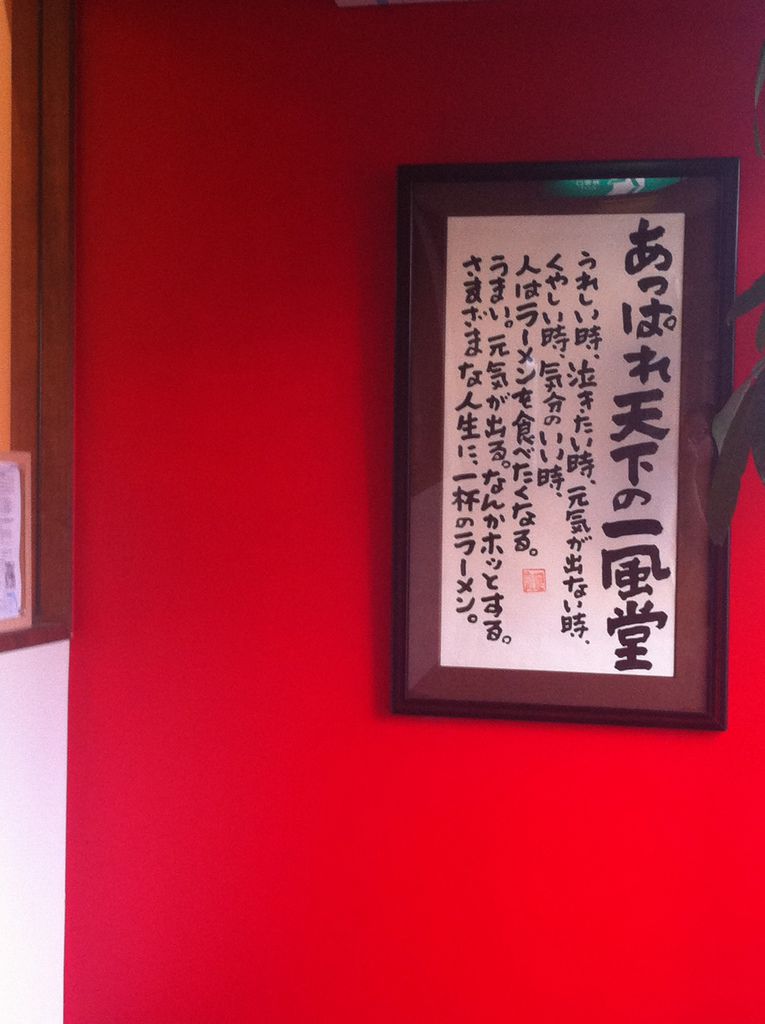 あっぱれ天下の一風堂
うれしい時、泣きたい時、元気が出ない時、
くやしい時、気分のいい時、
人はラーメンを食べたくなる。
うまい。元気が出る。なんかホッとする。
さまざまな人生に、一杯のラーメン。